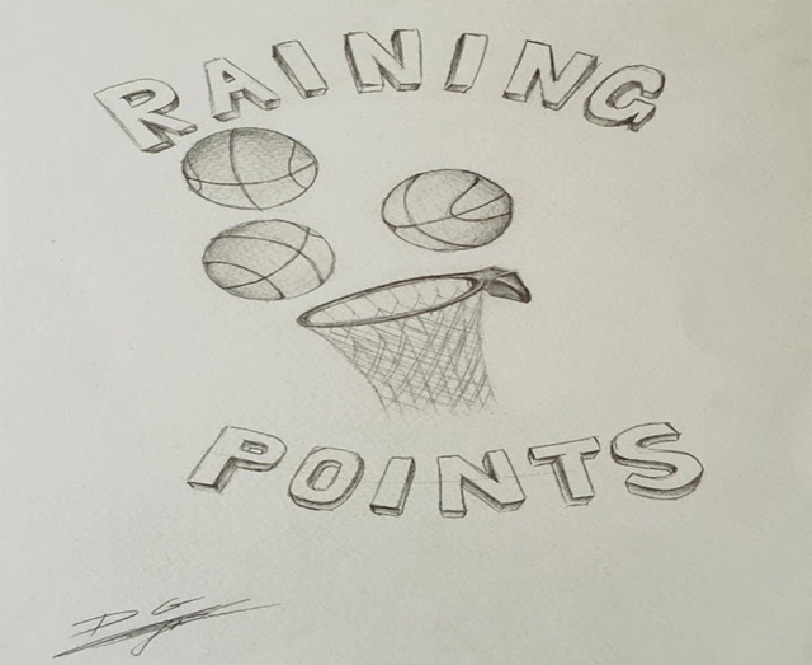 RAINING
POINTS
DG